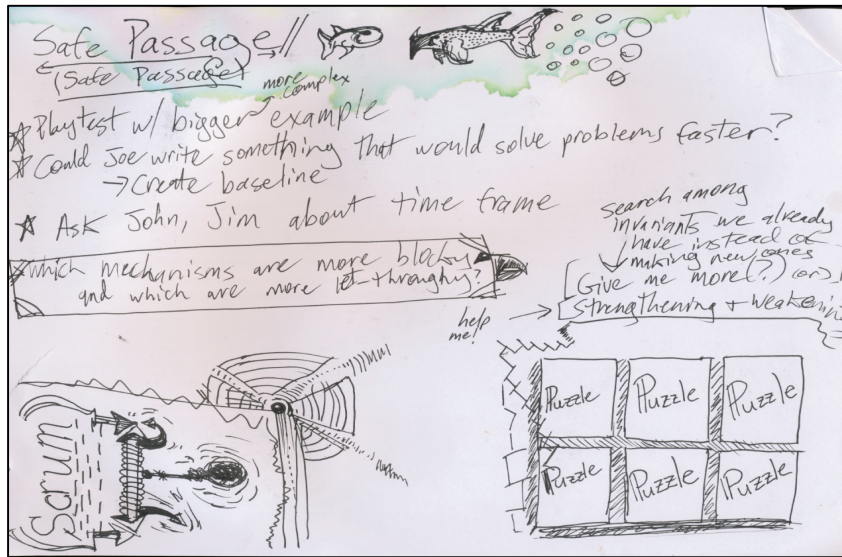 Safe Passage
(Safe Passage)
more
complex
★ Playtest w/ bigger example
★ Could Joe write something that would solve problems faster?
→ Create baseline
★ Ask John, Jim about time frame
which mechanisms are more blocky
and which are more let-throughy?
search among
invariants we already
have instead of
making new ones
Give me more(?) (or)
strengthening + weakenin
help
me!
Scrum
Puzzle Puzzle Puzzle
Puzzle Puzzle Puzzle